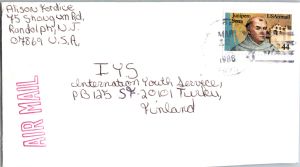 Alison Yordice
45 Shongum Rd,
Randolph, N.J.
07869 U.S.A.
Junipero Serra
USAirmail
44
MAR
1986
IYS
International Youth Service,
PB 125 SF-20101 Turku,
Finland
AIR MAIL